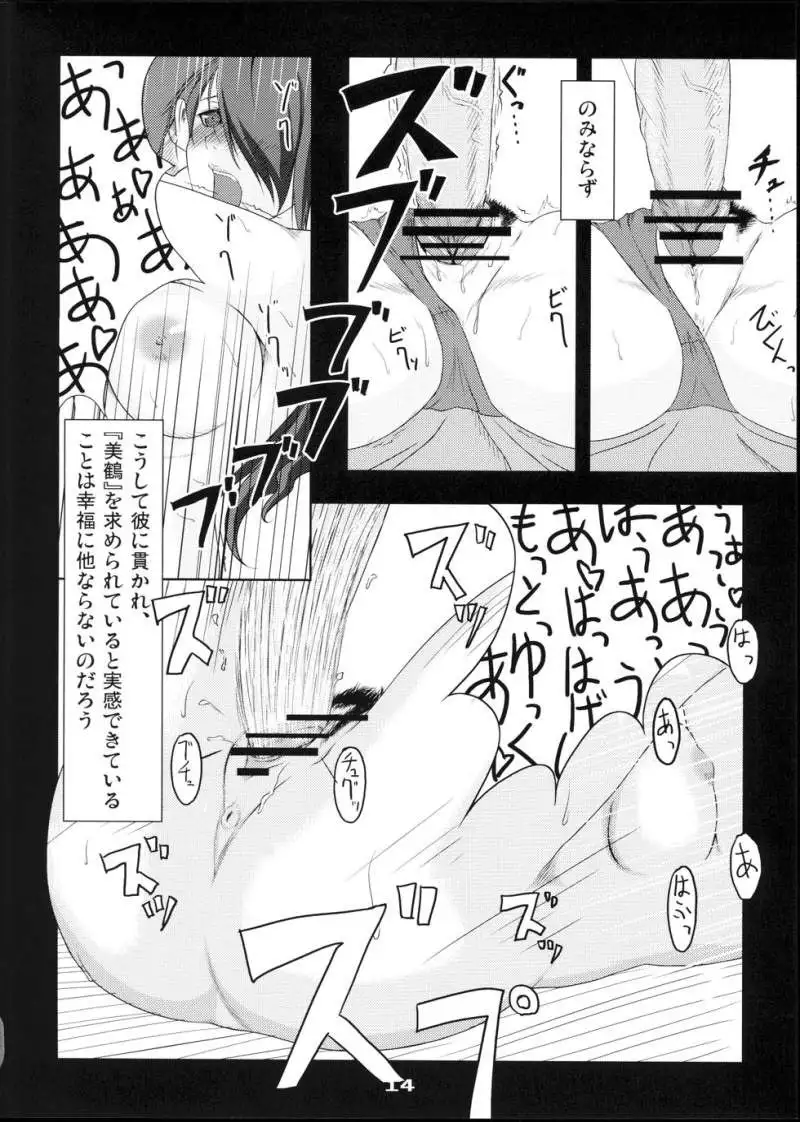 のみならず
チュ
ぐっ…
びくんっ
ビク
ビクッ
ズブ
ズブブ
ゾク
ゾク
あっ
ああ♡
ああぁ
ああああ
ああ♡
ブブブ
こうして彼に貫かれ、
『美鶴』を求められていると実感できている
ことは幸福に他ならないのだろう
ズズ
ズズ
あっ♡はっはげ
もっとゆっく
はっ
あっ
あ
はぷっ
ブチュ
チュグッ
ズズ
ズズ
ズズ
ズプ。
14